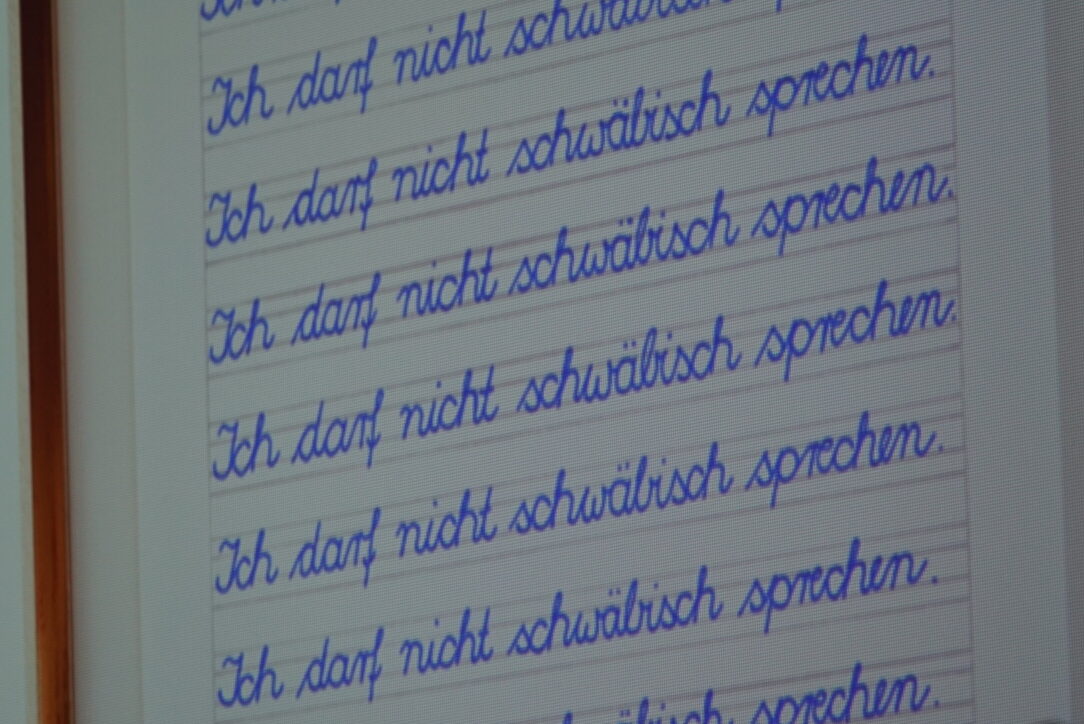 Ich darf nicht schwäbisch
Ich darf nicht schwäbisch sprechen.
Ich darf nicht schwäbisch sprechen.
Ich darf nicht schwäbisch sprechen.
Ich darf nicht schwäbisch sprechen.
Ich darf nicht schwäbisch sprechen.
schwäbisch sprechen.